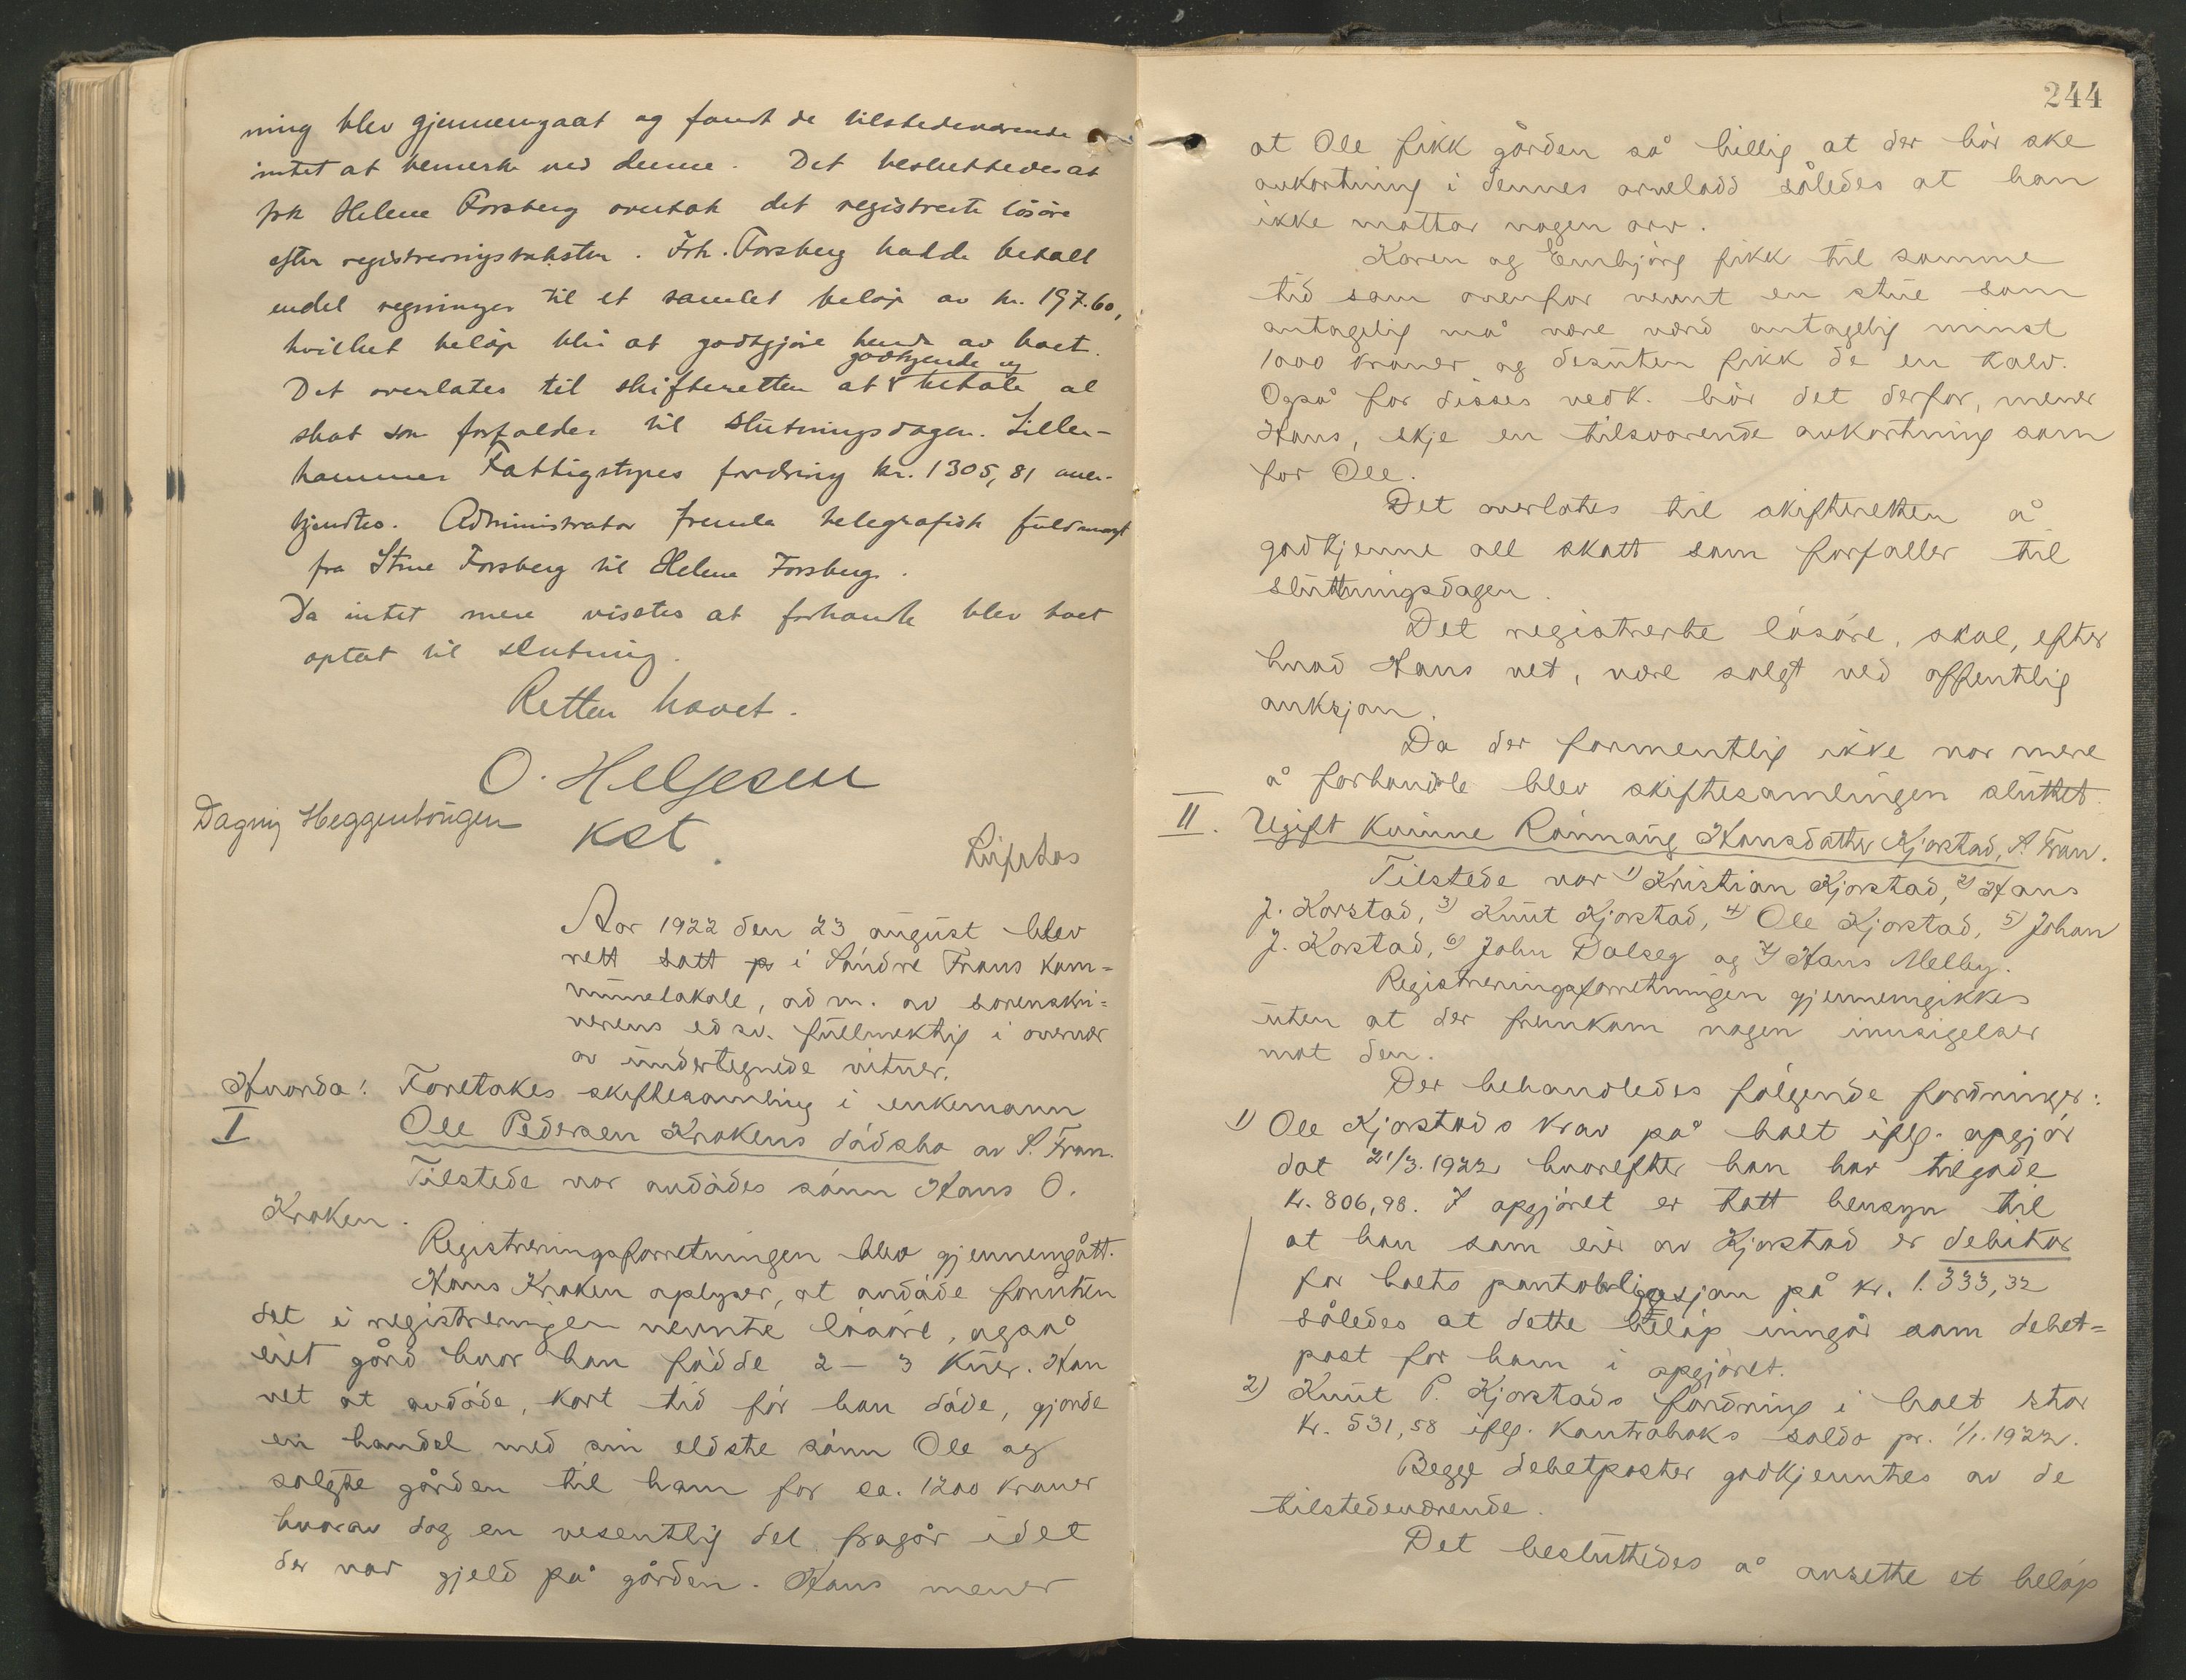 ning blev gjennemgaat og fandt de tilstedeværende
intet at bemerke ved denne. Det besluttedes at
frk Helene Forsberg overtok det registrerte løsøre
efter registreringstaksten. Frk. Forsberg hadde betalt
endel regninger til et samlet beløp av kr. 197.60,
hvilket beløp blir at godtgjøre hende av boet.
godkjende og
Det overlates til skifteretten at betale al
skat som forfalder til slutningsdagen. Liller-
hammer Fattigstyres fordring kr. 1305,81 aner-
kjendtes. Administrator fremla telegrafisk fuldmagt
fra Stine Forsberg til Helene Forsberg.
Da intet mere visstes at forhandle blev boet
optat til slutning.
Retten hævet.
O. Helgesen
Dagny Heggenhougen
kst.
Aar 1922 den 23 august blev
rett satt på i Søndre Frons kom-
munelokale, adm. av sorenskri-
verens edsv. fullmektig i overvær
av undertegnede vitner.
Hvorda: Foretakes skiftesamling i enkemann
I Ole Pedersen Krokens dødsbo av S. Fron.
Tilstede var avdødes sønn Hans O.
Kroken.
Registreringsforretningen blev gjennemgått.
Hans Kroken oplyser, at avdøde foruten
det i registreringen nevnte løsøre, også
eiet gård hvor han fødde 2-3 kuer. Han
vet at avdøde, kort tid før han døde, gjorde
en handel med sin eldste sønn Ole og
solgte gården til ham for ca. 1200 kroner
hvorav dog en vesentlig del fragår idet
der var gjeld på gården. Hans mener
244
at Ole fikk gården så billig at der bør ske
avkortning i dennes arvelodd således at han
ikke mottar nogen arv.
Karen og Embjørg fikk til samme
tid som ovenfor nevnt en stue som
antagelig må være værd antagelig minst
1000 kroner og desuten fikk de en kalv.
Også for disses vedk. bør det derfor, mener
Hans, skje en tilsvarende avkortning som
for Ole.
Det overlates til skifteretten å
godkjenne all skatt som forfaller til
sluttningsdagen.
Det registrerte løsøre, skal, efter
hvad Hans vet, være solgt ved offentlig
auksjon.
Da der formentlig ikke var mere
å forhandle blev skiftesamlingen sluttet.
II. Ugift kvinne Rønnaug Hansdatter Kjorstad, S. Fron.
Tilstede var 1) Kristian Kjorstad, 2) Hans
J. Korstad, 3) Knut Kjorstad, 4) Ole Kjorstad, 5) Johan
J. Korstad, 6) John Dalseg og 7) Hans Melby.
Registreringsforretningen gjennemgikkes
uten at der fremkom nogen innsigelser
mot den.
Der behandledes følgende fordringer:
1) Ole Kjorstads krav på boet iflg. opgjør
dat 21/3. 1922 hvorefter han har tilgode
kr. 806,98. I opgjøret er tatt hensyn til
at han som eier av Kjorstad er debitor
for boets pantobligasjon på kr. 1.333,32
således at dette beløp inngår som debet-
post for ham i opgjøret.
2) Knut P. Kjorstads fordring i boet stor
kr. 531,58 iflg. kontraboks saldo pr. 1/1. 1922.
Begge debetposter godkjenntes av de
tilstedeværende.
Det besluttedes å ansette et beløp